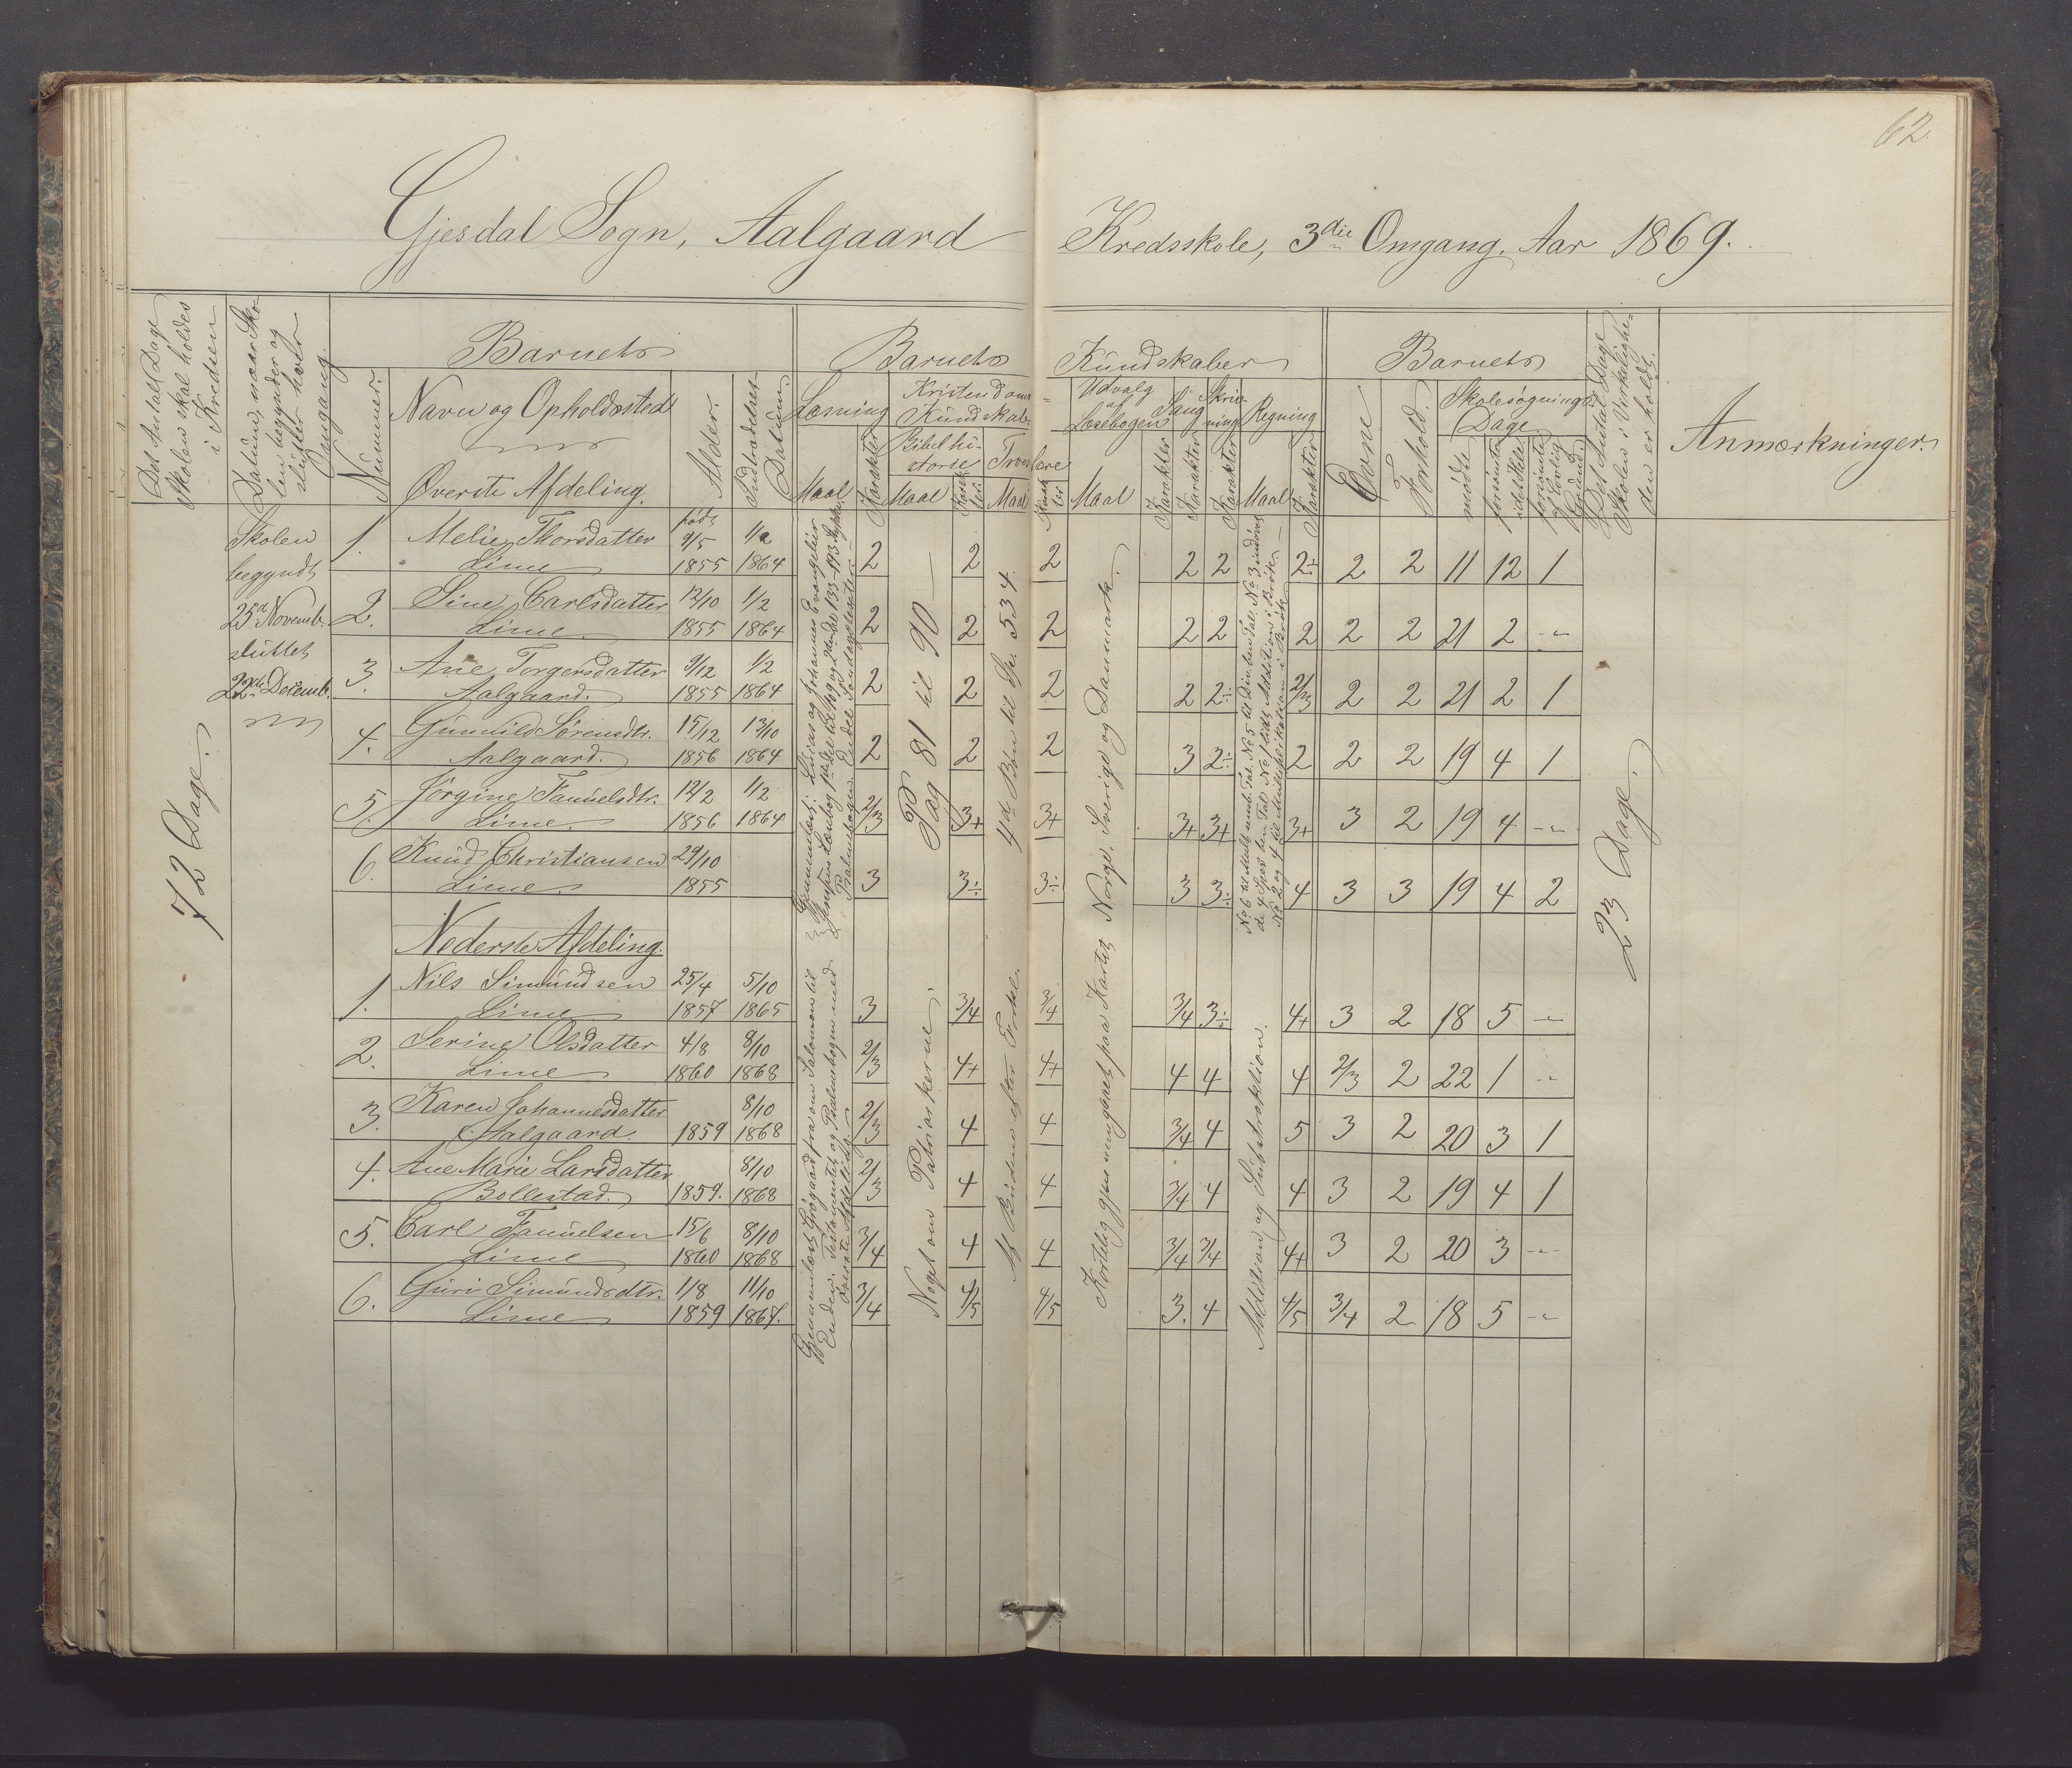 62.
Gjesdal Sogn, Aalgaard Kredsskole, 3die Omgang. Aar 1869.
Det Antal Dage Skolen skal holdes i Kredsen
Datum, naar Skolen begynder og slutter hver Omgang.
Barnets
Nummer.
Navn og Opholdssted
Alder.
Indtrædelses-Datum.
Barnets Kundskaber
Læsning
Maal
Karakter
Kristendoms-Kundskab.
Bibelhistorie
Maal
Karakter
Troeslære
Maal
Karakter
Udvalg af Læsebogen
Maal
Karakter
Sang
Karakter
Skrivning
Karakter
Regning
Maal
Karakter
Barnets
Evne
Forhold.
Skolesøgnings Dage.
mødte
forsømte i det Hele
forsømte af lovlig Grund.
Det Antal Dage Skolen i Virkeligheden er holdt.
Anmærkninger.
72 Dage.
Skolen
begyndt
25de Novemb.
sluttet
22de Decemb.
Øverste Afdeling.
1. Melie Thorsdatter født 9/5 1/2 2 2 2 2 2 2÷ 2 2 11 12 1
Lime 1855 1864
2. Sine Carlsdatter 12/10 1/2 2 2 2 2 2 2 2 2 21 2 -"-
Lime. 1855 1864
3. Ane Torgersdatter 9/12 1/2 2 2 2 2 2÷ 2/3 2 2 21 2 1
Aalgaard. 1855 1864
4. Gunnild Sørensdtr. 15/12 13/10 2 2 2 3 2÷ 2 2 2 19 4 1
Aalgaard. 1856 1864
5. Jørgine Tanuelsdtr. 12/2 1/2 2/3 3+ 3+ 3+ 3+ 3+ 3 2 19 4 -"-
Lime. 1856 1864
6. Knud Christiansen 29/10 3 3÷ 3÷ 3 3÷ 4 3 3 19 4 2
Lime. 1855
Pag 81 til 90
4de Bøn til Sp. 534.
23 Dage.
Nederste Afdeling.
1. Nils Simundsen 25/4 5/10 3 3/4 3/4 3/4 3÷ 4+ 3 2 18 5 -"-
Lime 1857 1865
2. Serine Olsdatter 4/8 8/10 2/3 4+ 4+ 4 4 4 2/3 2 22 1 -"-
Lime 1860 1868
3. Karen Johannesdatter 8/10 2/3 4 4 3/4 4 5 3 2 20 3 1
Aalgaard. 1859 1868
4. Ane Marie Larsdatter 8/10 2/3 4 4 3/4 4 4 3 2 19 4 1
Bollestad. 1859. 1868
5. Carl Tanuelsen 15/6 8/10 3/4 4 4 3/4 3/4 4+ 3 2 20 3 -"-
Lime 1860 1868
6. Guri Simundsdtr. 1/8 11/10 3/4 4/5 4/5 3. 4 4/5 3/4 2 18 5 -"-
Lime 1859 1867.
Noget om Patriarkerne.
Budene efter
Kortelig gjennemgaaet paa Kartet Norge, Sverige og Danmark.
Addition og Subtraktion.